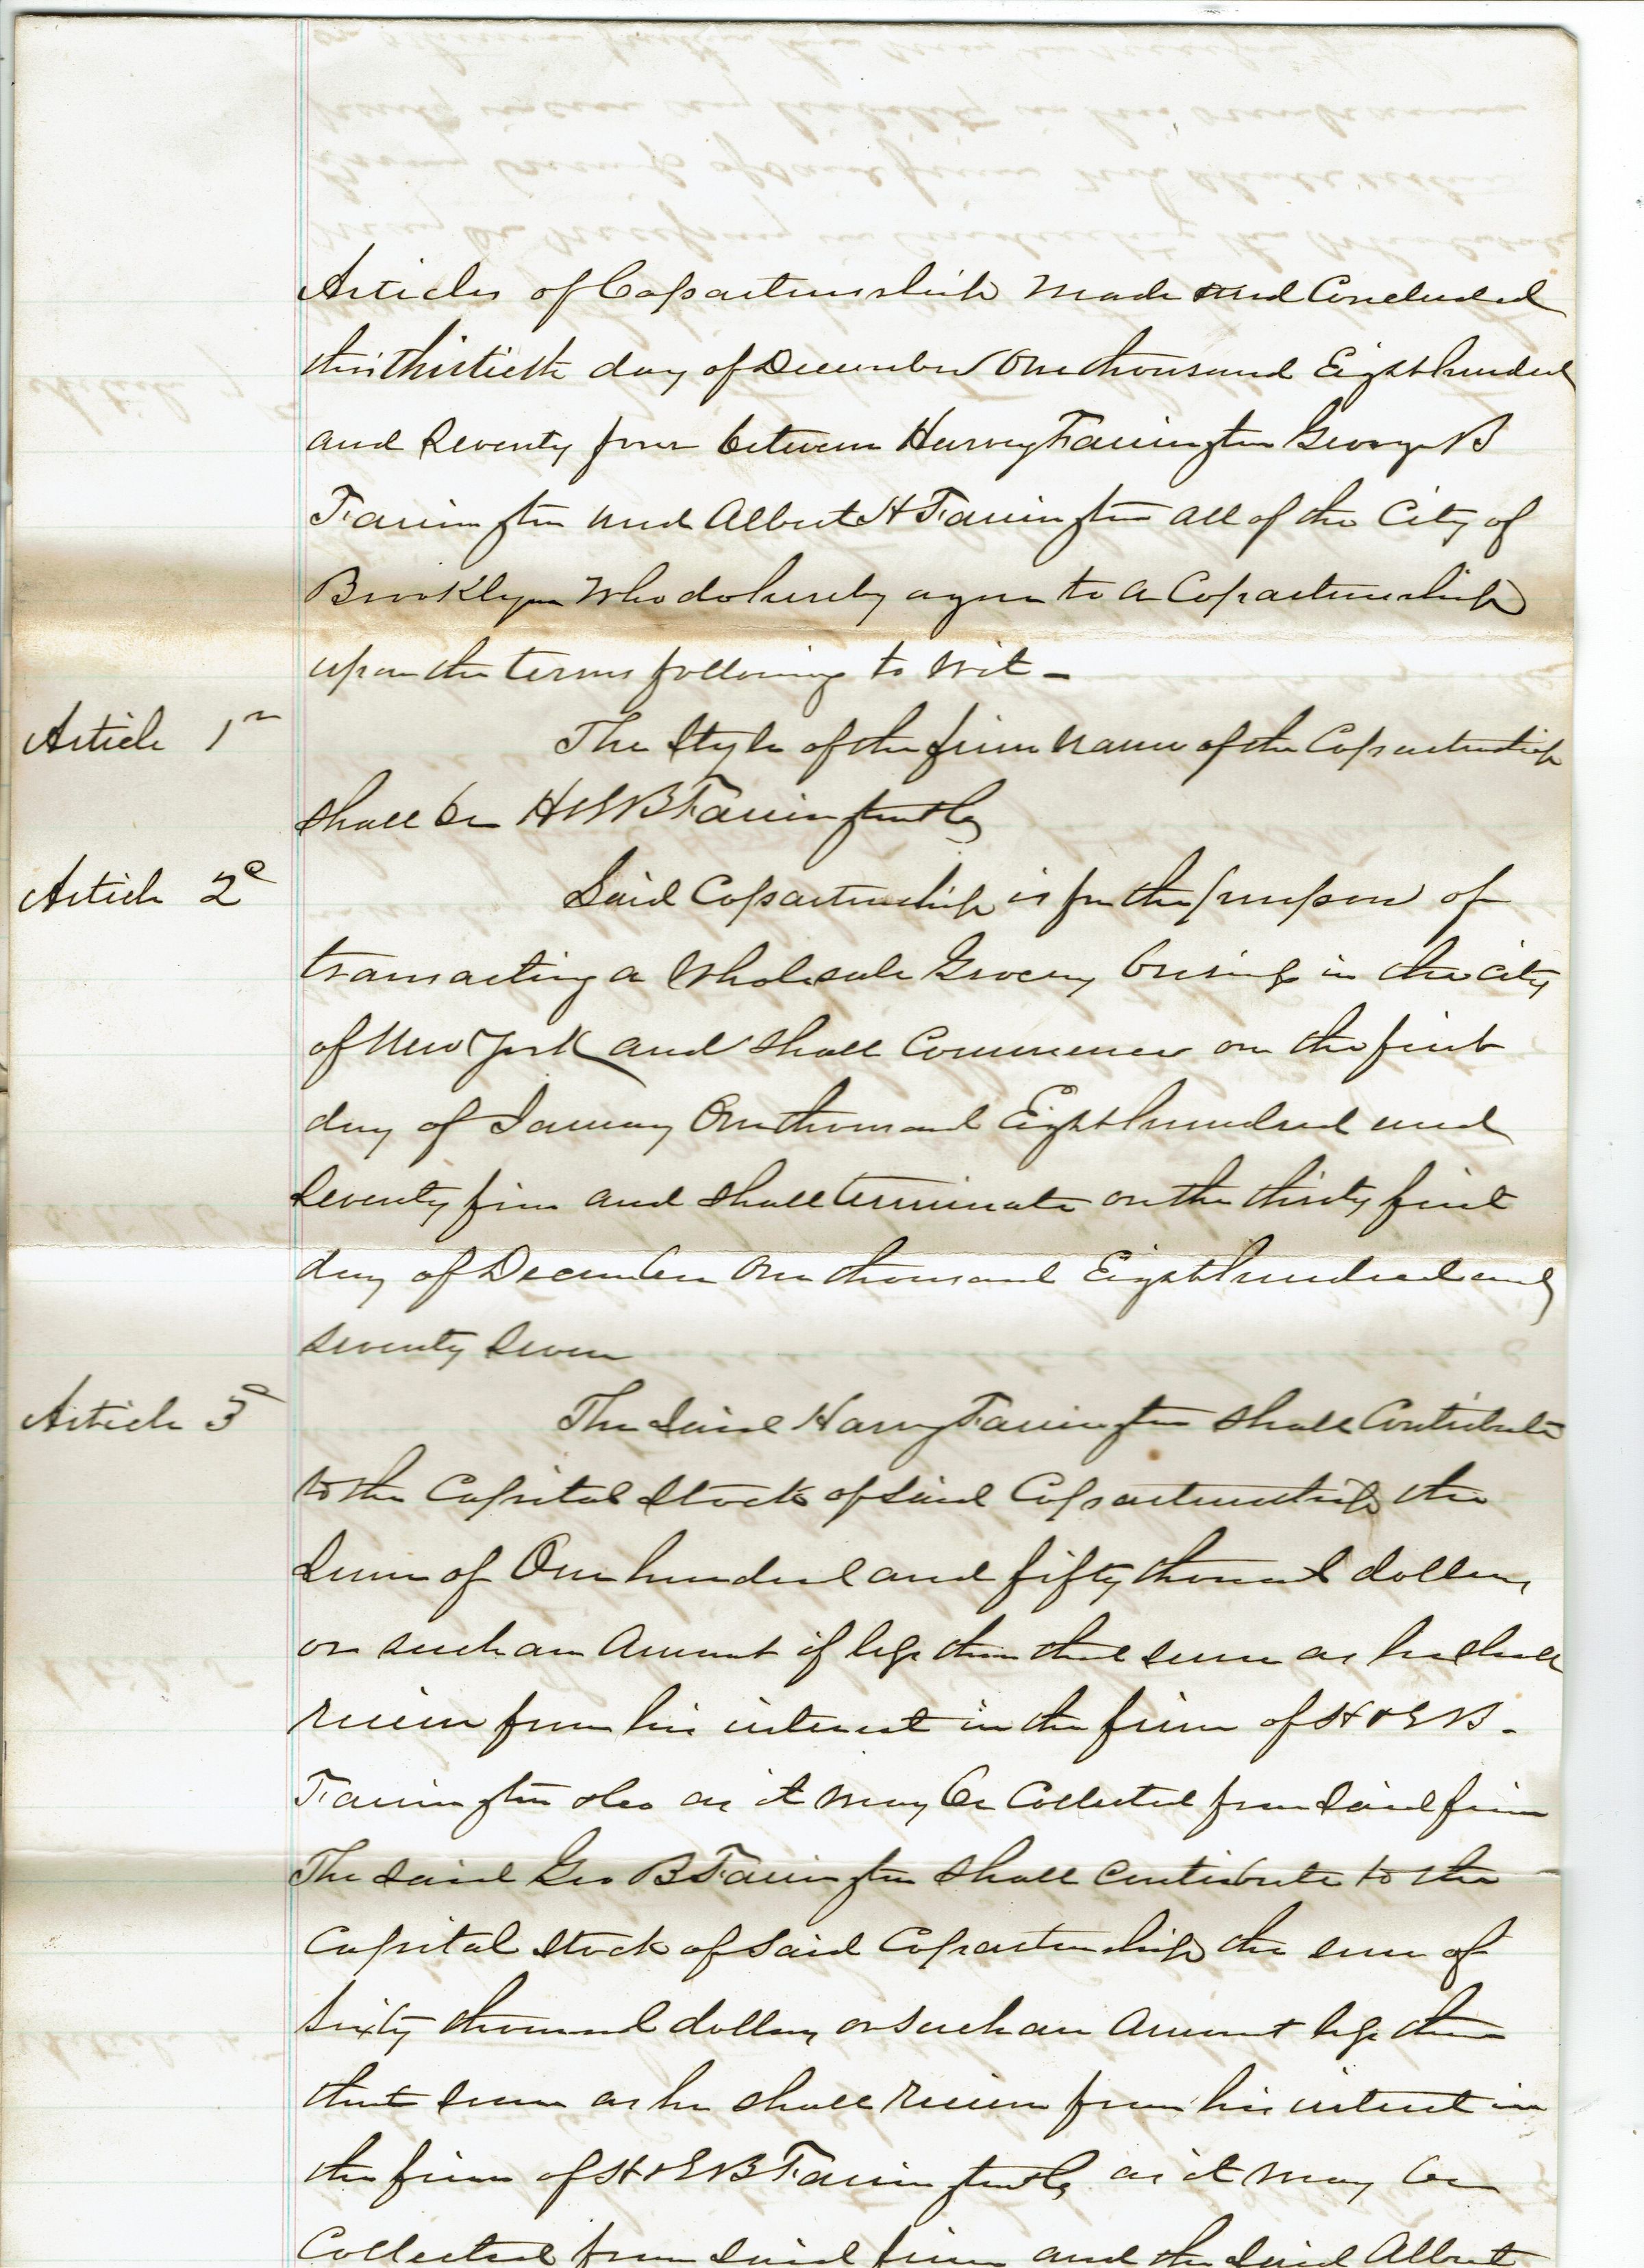 Articles of Copartnership made and Concluded
this thirtieth day of December One thousand Eight hundred
and Seventy four between Harvey Farrington George B
Farrington and Albert H Farrington all of the City of
Brooklyn who do hereby agree to a Copartnership
upon the terms following to wit -
Article 1st The Style of the firm name of the Copartnership
shall be H & G B Farrington & Co
Article 2d Said Copartnership is for the purpose of
transacting a Wholesale Grocery business in the city
of New York and shall Commence on the first
day of January One thousand Eight hundred and
Seventy five and shall terminate on the thirty first
day of December One thousand Eight hundred and
seventy seven
Article 3d The said Harvey Farrington shall Contribute
to the Capital Stock of said Copartnership the
Sum of One hundred and fifty thousand dollars
or such an Amount if less than that sum as he shall
receive from his interest in the firm of H & G B -
Farrington & Co as it may be Collected from said firm
The said Geo B Farrington shall contribute to the
Capital stock of said Copartnership the sum of
Sixty thousand dollars or such an Amount less than
that sum as he shall receive from his interest in
the firm of H & G B Farrington & Co as it may be
Collected from said firm and the said Albert